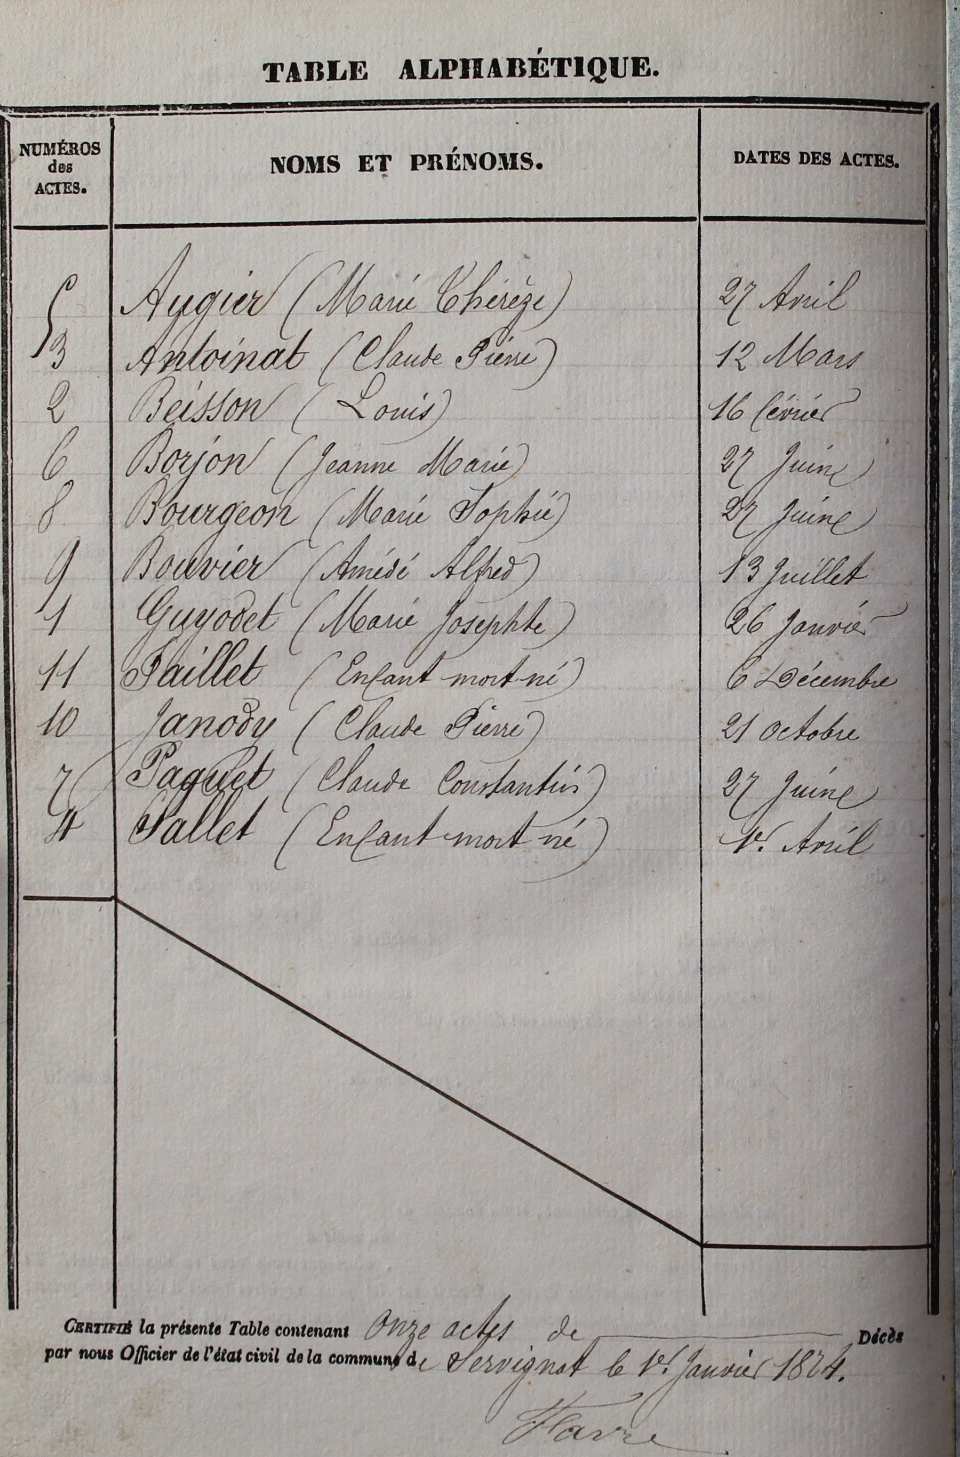 TABLE ALPHABÉTIQUE.
NUMÉROS des ACTES. NOMS ET PRÉNOMS. DATES DES ACTES.
5 Augier (Marie Thérèze) 27 Avril
3 Antoinat (Claude Pierre) 12 Mars
2 Beisson (Louis) 16 février
6 Borjon (Jeanne Marie) 27 Juin
8 Bourgeon (Marie Sophie) 27 Juin
9 Bouvier (Amédé Alfred) 13 Juillet
1 Guyodet (Marie Josephte) 26 Janvier
11 Jaillet (Enfant mort-né) 6 Décembre
10 Janody (Claude Pierre) 21 octobre
7 Paquet (Claude Constantin) 27 Juin
4 Sallet (Enfant mort né) 1er. Avril
CERTIFIÉ la présente Table contenant Onze actes de Décès
par nous Officier de l'état civil de la commune de Servignat le 1er. Janvier 1874.
Favre